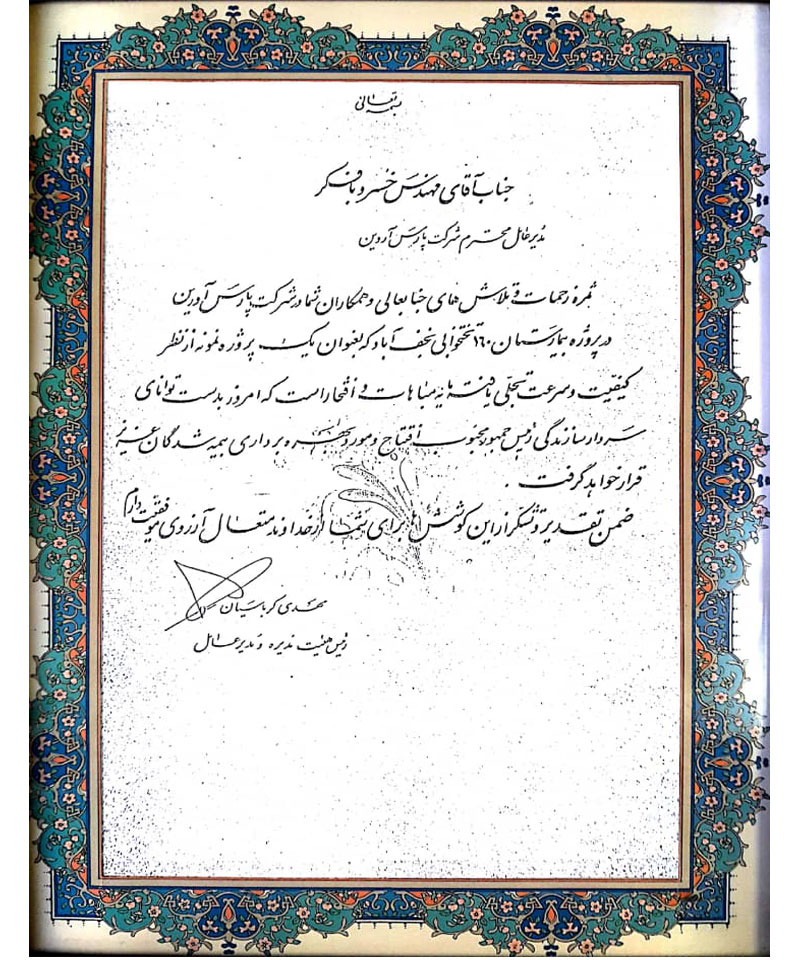 بسمه تعالی
جناب آقای مهندس خسرو بافکر
مدیرعامل محترم شرکت پارس آروین
ثمره زحمات و تلاش های جنابعالی و همکاران شما در شرکت پارس آورین
در پروژه بیمارستان ۱۶۰ تختخوابی نجف آباد که بعنوان یک پروژه نمونه از نظر
کیفیت و سرعت تجلی یافته مایه مباهات و افتخار است که امروز بدست توانای
سردار سازندگی رئیس جمهور محبوب افتتاح و مورد بهره برداری همیشدگان عزیز
قرار خواهد گرفت .
ضمن تقدیر و تشکر از این کوشش ها برای شما از خداوند متعال آرزوی موفقیت دارم
مهدی کرباسیان
رئیس هیئت مدیره و مدیرعامل